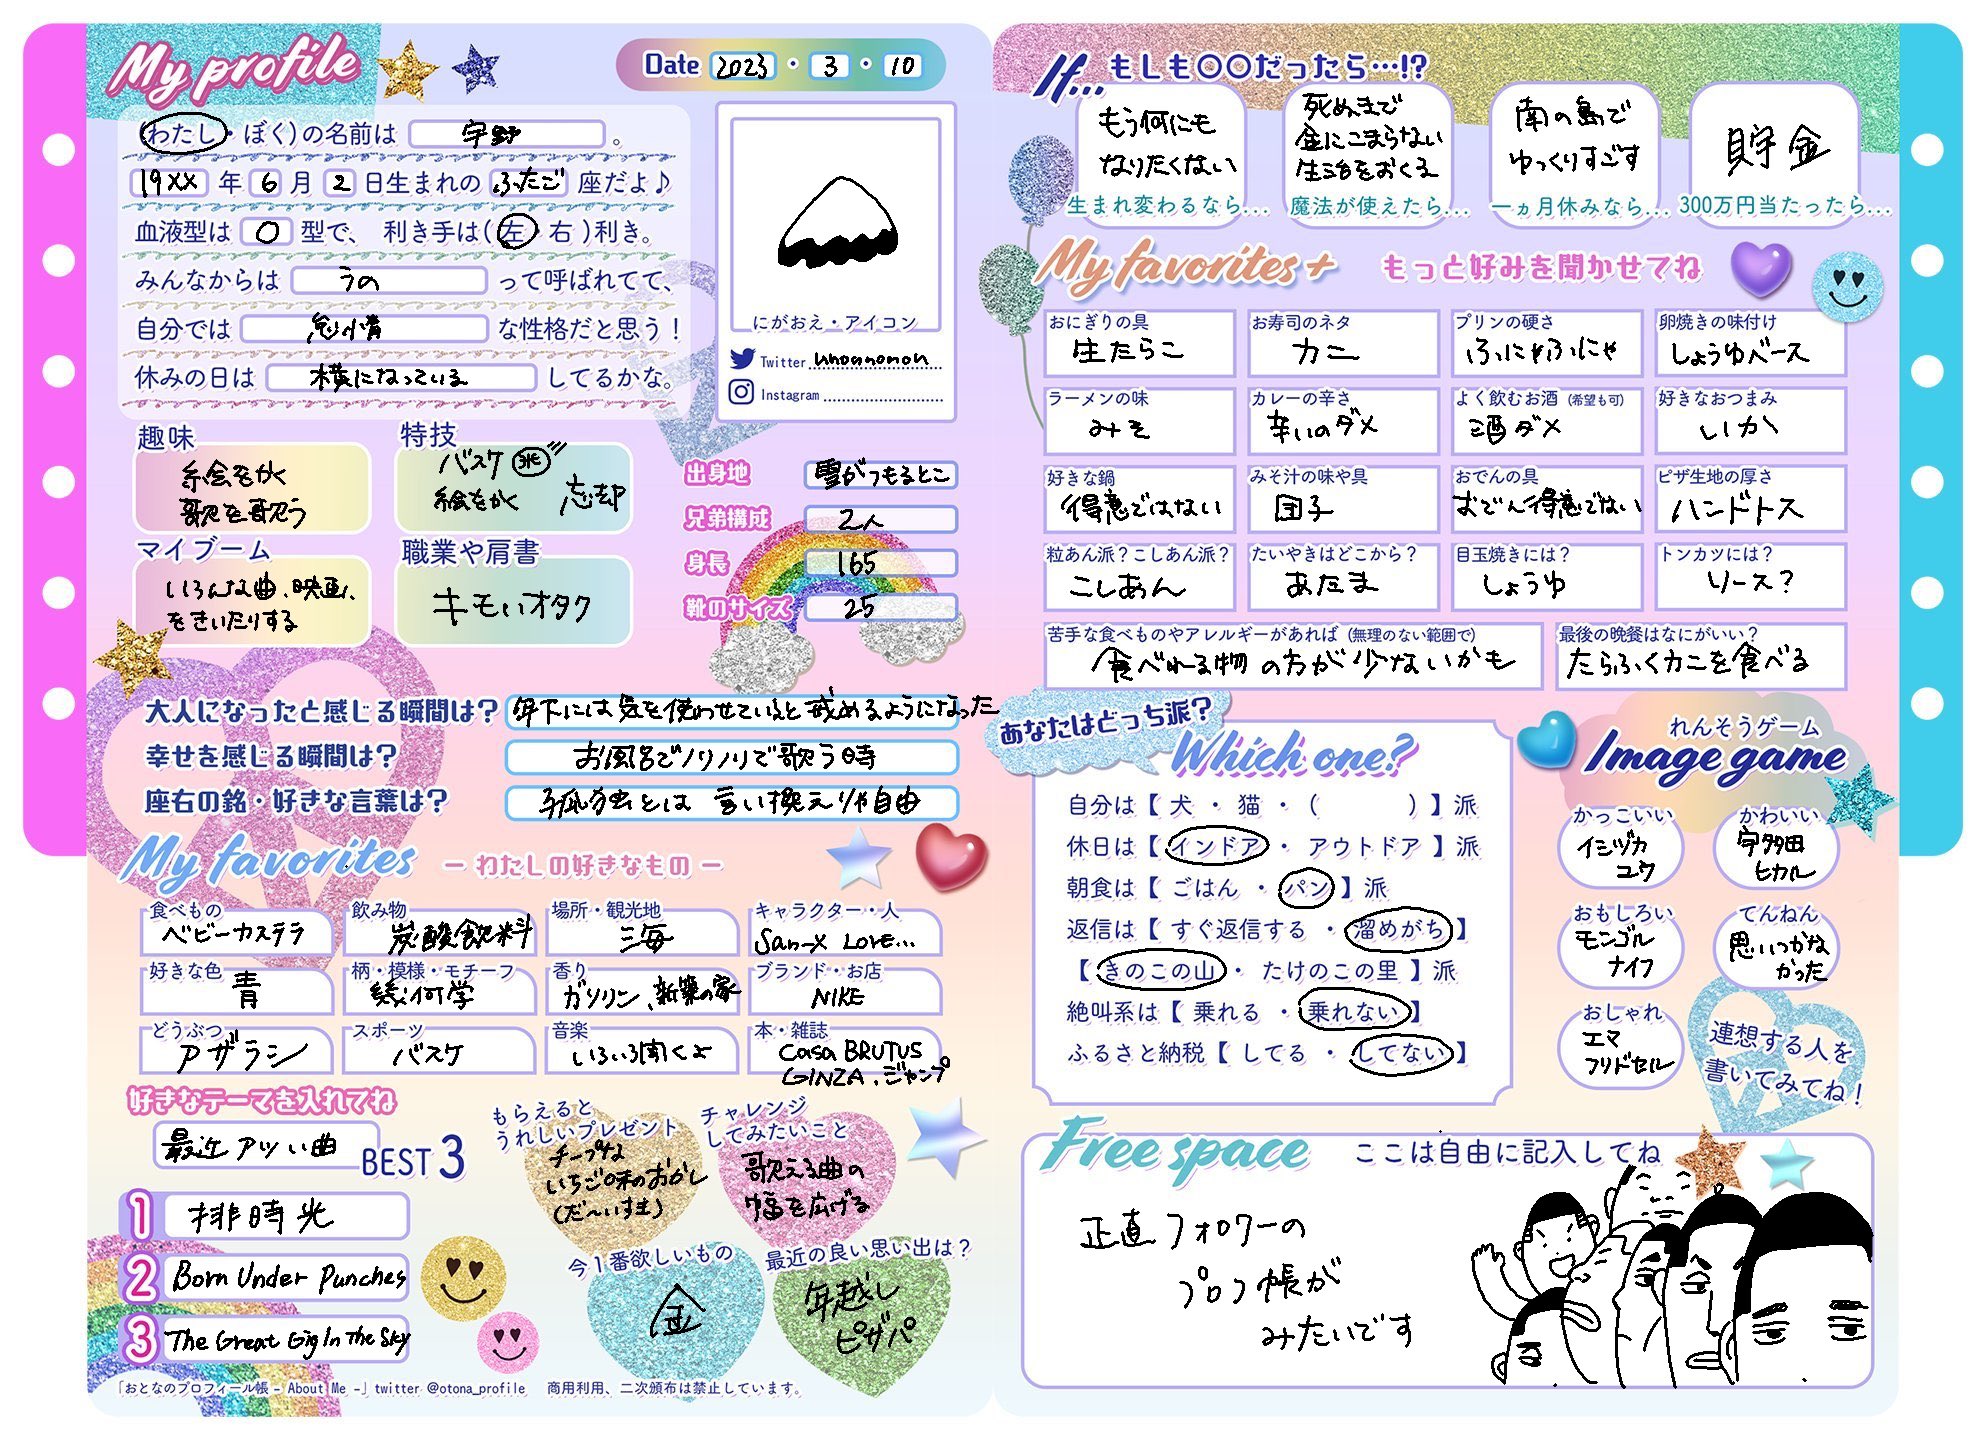 My profile
Date 2023・3・10
(わたし・ぼく)の名前は 宇野 。
19XX 年 6 月 2 日生まれの ふたご 座だよ♪
血液型は O 型で、 利き手は( 左・右 )利き。
みんなからは うの って呼ばれてて、
自分では 怠惰 な性格だと思う!
休みの日は 横になっている してるかな。
にがおえ・アイコン
Twitter unoanonon
Instagram
趣味
絵をかく
歌を歌う
特技
バスケ ㊙
絵をかく 忘却
マイブーム
いろんな曲、映画、
をきいたりする
職業や肩書
キモいオタク
出身地 雪がつもるとこ
兄弟構成 2人
身長 165
靴のサイズ 25
大人になったと感じる瞬間は? 年下には気を使わせていると戒めるようになった
幸せを感じる瞬間は? お風呂でノリノリで歌う時
座右の銘・好きな言葉は? 孤独とは 言い換えりゃ自由
My favorites ー わたしの好きなもの ー
食べもの ベビーカステラ
飲み物 炭酸飲料
場所・観光地 海
キャラクター・人 San-X LOVE...
好きな色 青
柄・模様・モチーフ 幾何学
香り ガソリン、新築の家
ブランド・お店 NIKE
どうぶつ アザラシ
スポーツ バスケ
音楽 いろいろ聞くよ
本・雑誌 Casa BRUTUS
GINZA、ジャンプ
好きなテーマを入れてね
最近アツい曲 BEST 3
1 排時光
2 Born Under Punches
3 The Great Gig In The Sky
もらえると
うれしいプレゼント
チープな
いちご味のおかし
(だ〜いすき)
チャレンジ
してみたいこと
歌える曲の
幅を広げる
今1番欲しいもの
金
最近の良い思い出は?
年越し
ピザパ
「おとなのプロフィール帳 - About Me -」twitter @otona_profile 商用利用、二次頒布は禁止しています。
If... もしも〇〇だったら…!?
もう何にも
なりたくない
生まれ変わるなら...
死ぬまで
金にこまらない
生活をおくる
魔法が使えたら...
南の島で
ゆっくりすごす
一ヵ月休みなら...
貯金
300万円当たったら...
My favorites+ もっと好みを聞かせてね
おにぎりの具 生たらこ
お寿司のネタ カニ
プリンの硬さ ふにゃふにゃ
卵焼きの味付け しょうゆベース
ラーメンの味 みそ
カレーの辛さ 辛いのダメ
よく飲むお酒 (希望も可) 酒ダメ
好きなおつまみ いか
好きな鍋 得意ではない
みそ汁の味や具 団子
おでんの具 おでん得意ではない
ピザ生地の厚さ ハンドトス
粒あん派?こしあん派? こしあん
たいやきはどこから? あたま
目玉焼きには? しょうゆ
トンカツには? ソース?
苦手な食べものやアレルギーがあれば (無理のない範囲で) 食べれる物の方が少ないかも
最後の晩餐はなにがいい? たらふくカニを食べる
あなたはどっち派?
Which one?
自分は【 犬 ・ 猫 ・ ( ) 】派
休日は【 インドア ・ アウトドア 】派
朝食は【 ごはん ・ パン 】派
返信は【 すぐ返信する ・ 溜めがち 】
【 きのこの山 ・ たけのこの里 】派
絶叫系は【 乗れる ・ 乗れない 】
ふるさと納税【 してる ・ してない 】
れんそうゲーム
Image game
かっこいい
イシヅカ
ユウ
かわいい
宇多田
ヒカル
おもしろい
モンゴル
ナイフ
てんねん
思いつかな
かった
おしゃれ
エマ
フリドセル
連想する人を
書いてみてね!
Free space ここは自由に記入してね
正直フォロワーの
プロフ帳が
みたいです